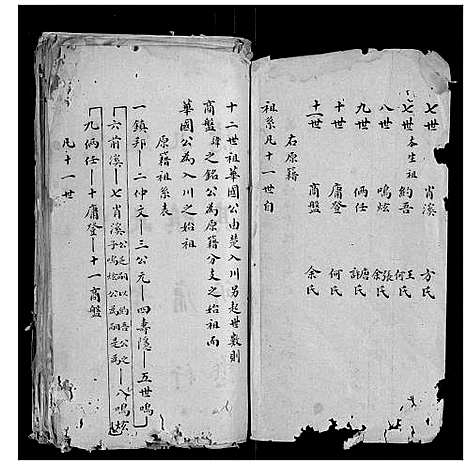 七世 肖溪 方氏
七世 本生祖 約吾 何氏 王氏
八世 鳴炫 余氏 張氏
九世 俩任 許氏 唐氏
十世 庸登 何氏
十一世 商盤 余氏
右原籍
祖系凡十一世自
十二世祖華國公由楚入川另起世數則
商盤 之銘公為原籍分支之始祖而
華國公為入川之始祖
原籍祖系表
一鎮邦—二仲文—三公元—四壽隱—五世鳴
六前溪—七肖溪 以約吾公之子鳴炫公為嗣 —八鳴炫
九俩任—十庸登—十一商盤
凡十一世